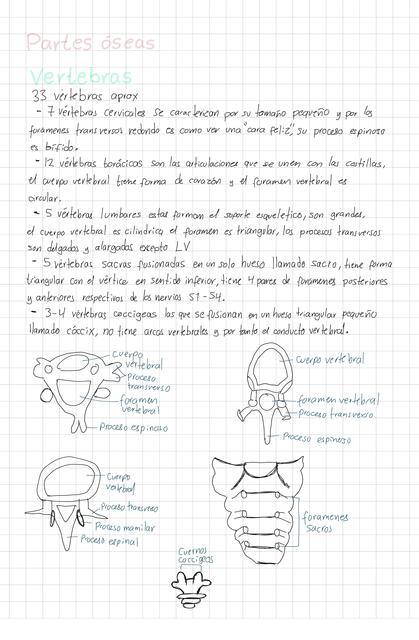 Partes óseas
Vertebras
33 vértebras aprox
- 7 vértebras cervicales se caracterizan por su tamaño pequeño y por los
forámenes transversos redondo es como ver una "cara feliz", su proceso espinoso
es bífido.
- 12 vértebras torácicos son las articulaciones que se unen con las costillas,
el cuerpo vertebral tiene forma de corazón y el foramen vertebral es
circular.
- 5 vértebras lumbares estas forman el soporte esquelético, son grandes,
el cuerpo vertebral es cilíndrica, el foramen es triangular, los procesos transversos
son delgados y alargados exepto LV
- 5 vértebras sacras fusionadas en un solo hueso llamado sacro, tiene forma
triangular con el vértice en sentido inferior, tiene 4 pares de foramenes posteriores
y anteriores respectivos de los nervios S1-S4.
- 3-4 vertebras coccígeas las que se fusionan en un hueso triangular pequeño
llamado cóccix, no tiene arcos vertebrales y por tanto el conducto vertebral.
Cuerpo
vertebral
Proceso
transverso
foramen
vertebral
Proceso espinoso
Cuerpo vertebral
foramen vertebral
Proceso transverso
Proceso espinoso
Cuerpo
vertebral
Proceso transverso
Proceso mamilar
Proceso espinal
foramenes
Sacros
Cuernos
coccígeos